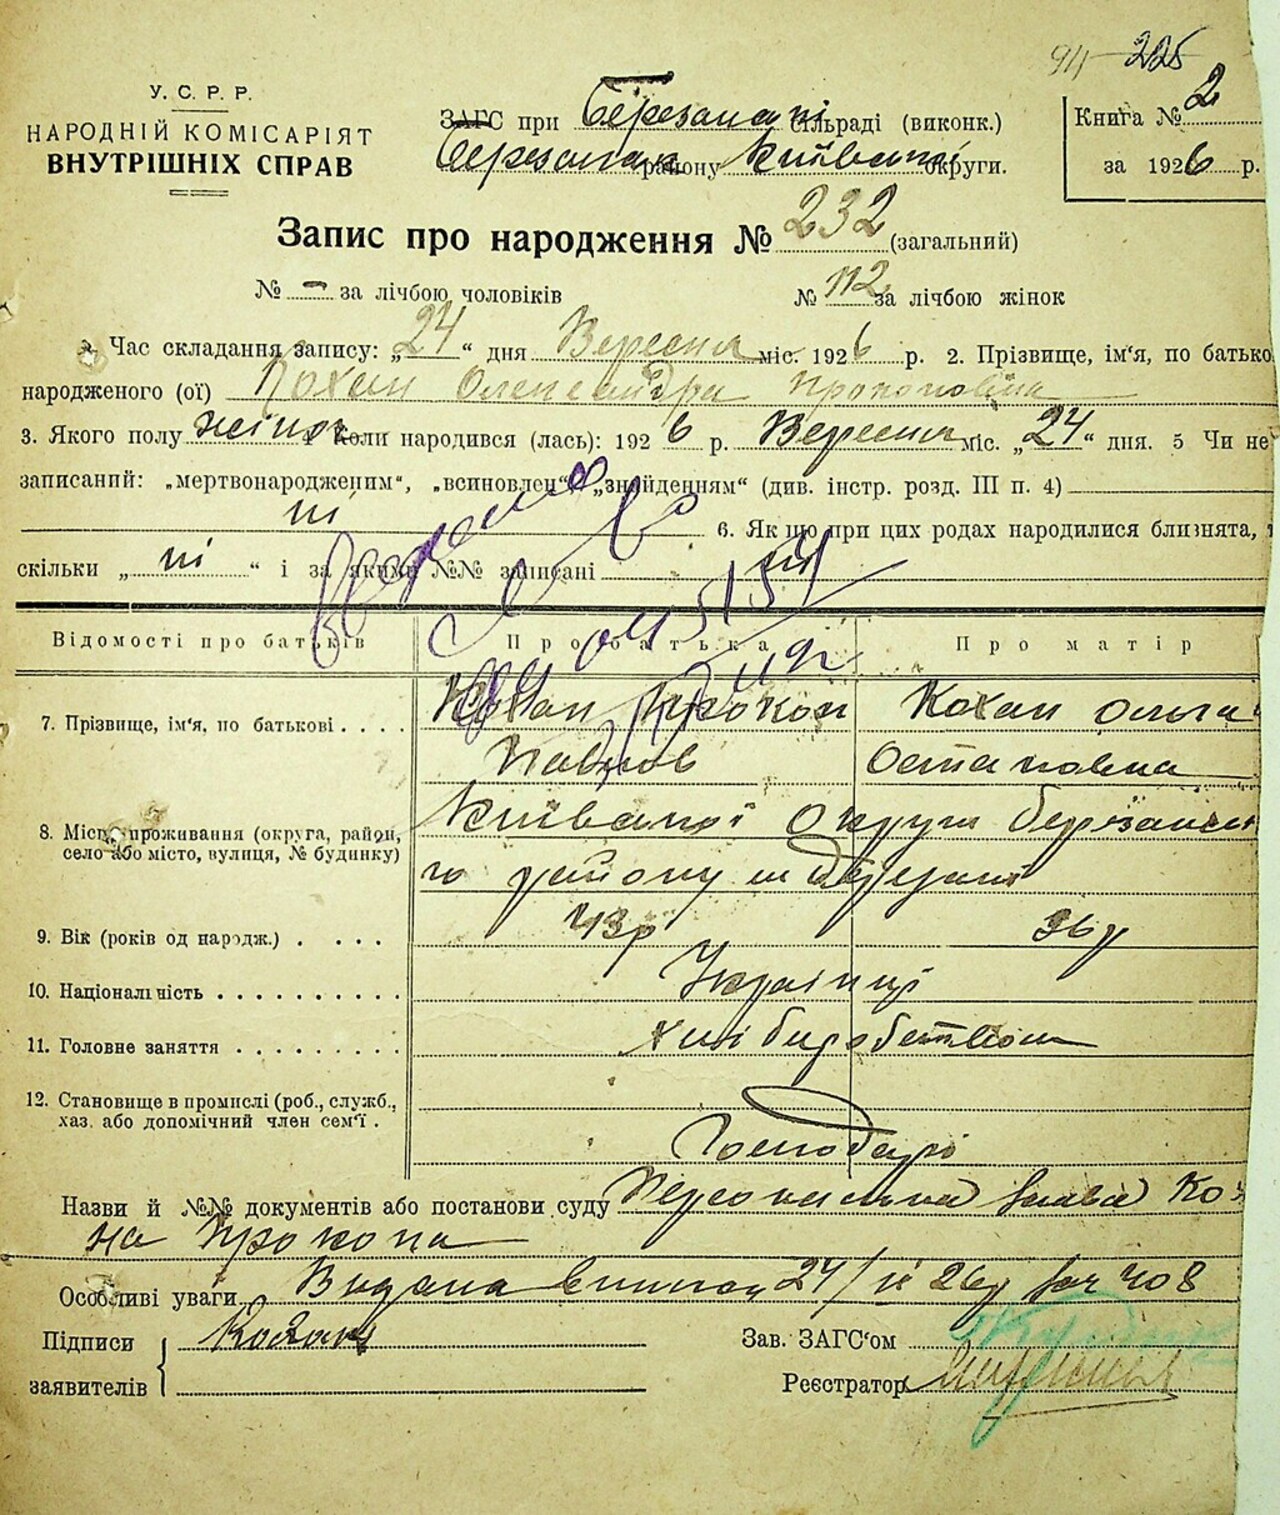 У. С. Р. Р.
НАРОДНІЙ КОМІСАРІЯТ
ВНУТРІШНІХ СПРАВ
225
ЗАГС при Березанські сільраді (виконк.)
Березансь району Київської округи.
Книга № 2
за 1926 р.
Запис про народження № 232 (загальний)
№ - за лічбою чоловіків № 112 за лічбою жінок
1. Час складання запису: „24“ дня Вересня міс. 1926 р. 2. Прізвище, ім'я, по батько
народженого (ої) Кохан Олександра Прокоповна
3. Якого полу жіноч 4 Коли народився (лась): 1926 р. Вересня міс. „24“ дня. 5 Чи не
записаний: „мертвонародженим“, „всиновлен“, „знайденням“ (див. інстр. розд. III п. 4)
ні 6. Як що при цих родах народилися близнята,
скільки „ні“ і за якими №№ записані ні
Відомості про батьків Про батька Про матір
7. Прізвище, ім'я, по батькові . . . . Кохан Прокоп Кохан Ольга
Павлов Остаповна
8. Місце проживання (округа, район, Київської Округи Березансь
село або місто, вулиця, № будинку) го району м Березані
9. Вік (років од народж.) . . . . 43р 36р
10. Національність . . . . . . . . . . Українці
11. Головне заняття . . . . . . . . . Хліборобством
12. Становище в промислі (роб., служб.,
хаз. або допомічний член сем'ї . Господарі
Назви й №№ документів або постанови суду Персональна заява Ко
на Прокопа
Особливі уваги Видана 24/ 26р 408
Підписи Кохан Зав. ЗАГС'ом
заявителів Реєстратор